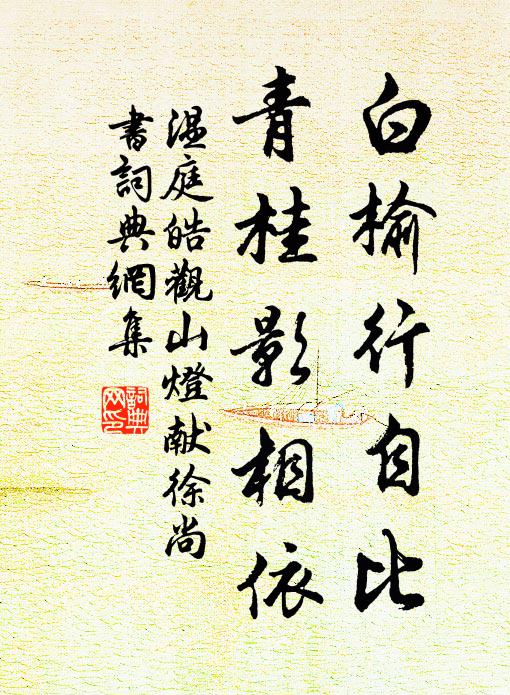 白榆行自比
青桂影相依
温庭皓觀山燈献徐尚
書詞典網集
詞典
网印